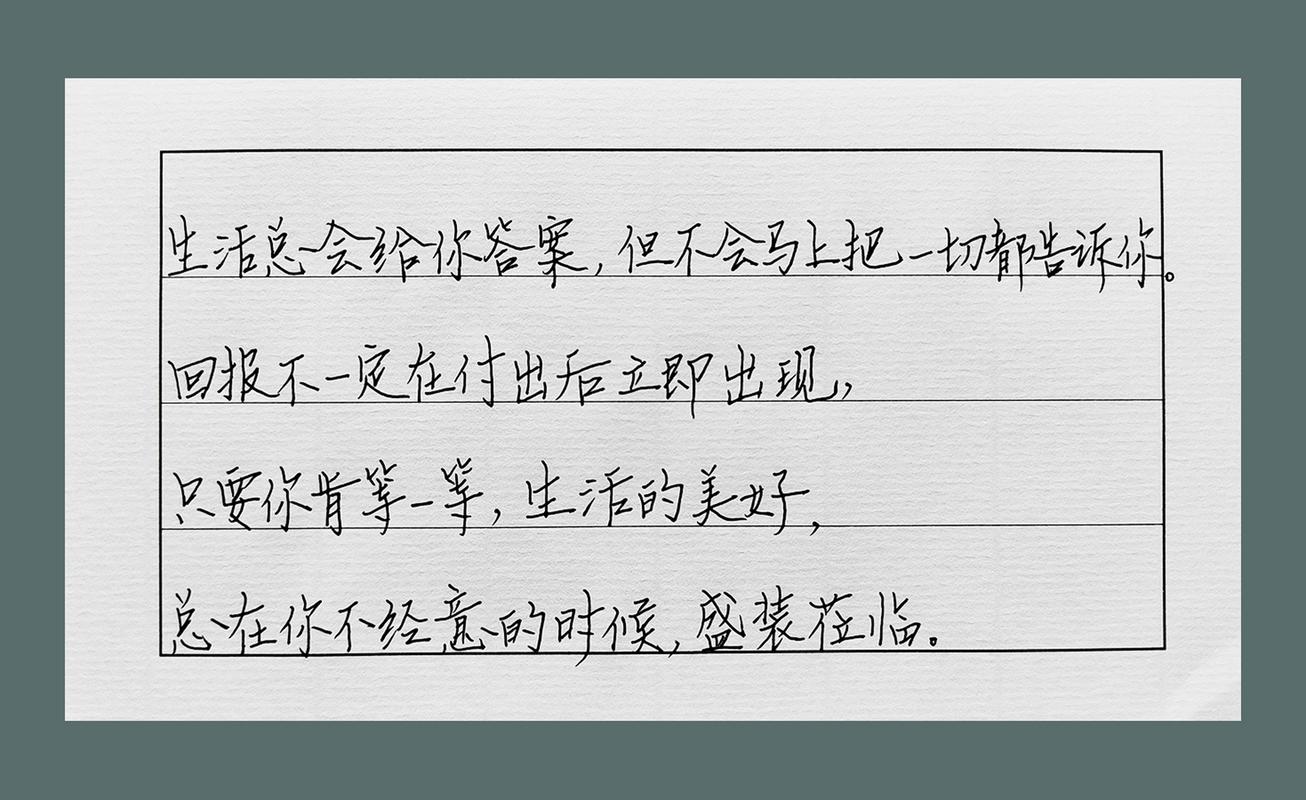 生活总会给你答案,但不会马上把一切都告诉你。
回报不一定在付出后立即出现,
只要你肯等一等,生活的美好,
总在你不经意的时候,盛装莅临。